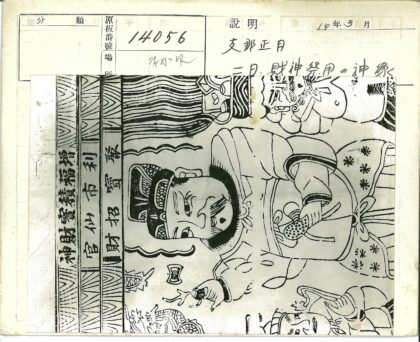 分類
原板番號
14056
場所
説明
支那正月
二日、財神祭用の神像
增福積寶財神
利市仙官
聚寶招財